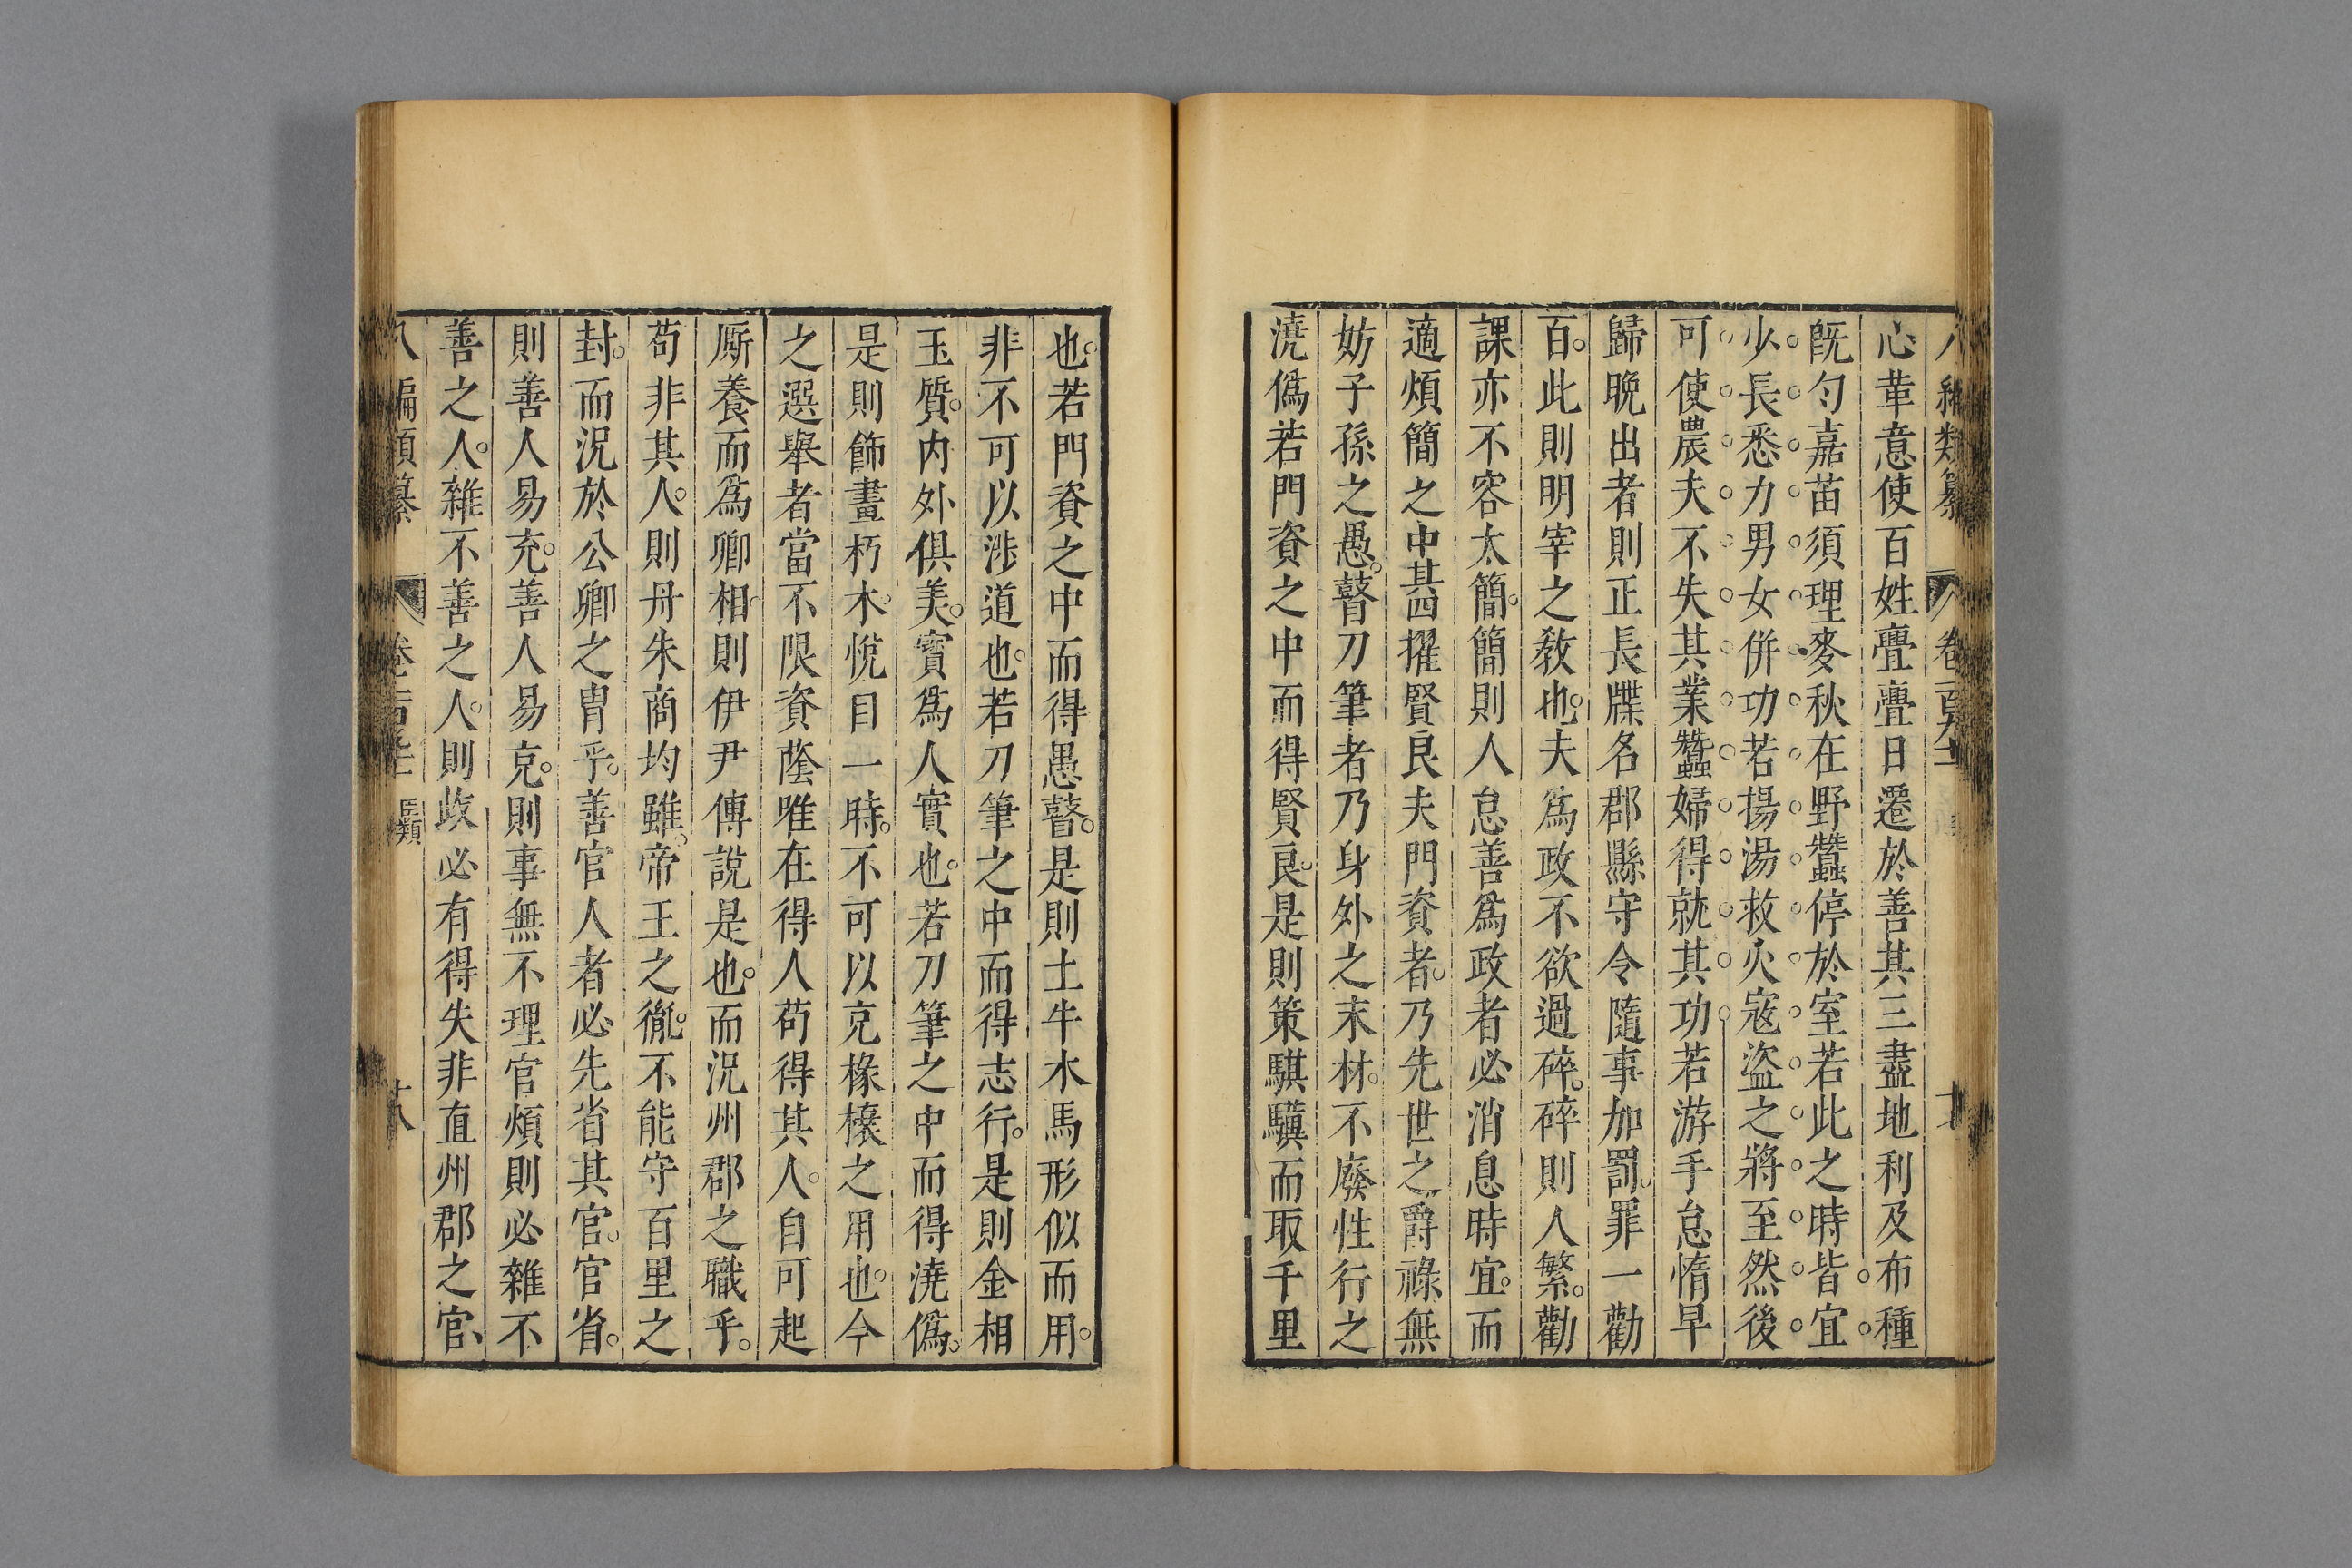 心革意使百姓亹亹日遷於善其三盡地利及布種
旣勻嘉苗須理麥秋在野蠶停於室若此之時皆宜
少長悉力男女併功若揚湯救火寇盜之將至然後
可使農夫不失其業蠶婦得就其功若游手怠惰早
歸晚出者則正長牒名郡縣守令隨事加罰罪一勸
百此則明宰之敎也夫爲政不欲過碎碎則人繁勸
課亦不容太簡簡則人怠善爲政者必消息時宜而
適煩簡之中其四擢賢良夫門資者乃先世之爵祿無
妨子孫之愚瞽刀筆者乃身外之末材不廢性行之
澆僞若門資之中而得賢良是則策騏驥而取千里
也若門資之中而得愚瞽是則土牛木馬形似而用
非不可以涉道也若刀筆之中而得志行是則金相
玉質内外俱美實爲人寶也若刀筆之中而得澆僞
是則飾畫朽木悅目一時不可以克椽榱之用也今
之選舉者當不限資蔭唯在得人苟得其人自可起
厮養而爲卿相則伊尹傅說是也而況州郡之職乎
苟非其人則丹朱商均雖帝王之胤不能守百里之
封而況於公卿之胄乎善官人者必先省其官官省
則善人易充善人易克則事無不理官煩則必雜不
善之人雜不善之人則政必有得失非直州郡之官
八編類纂 卷